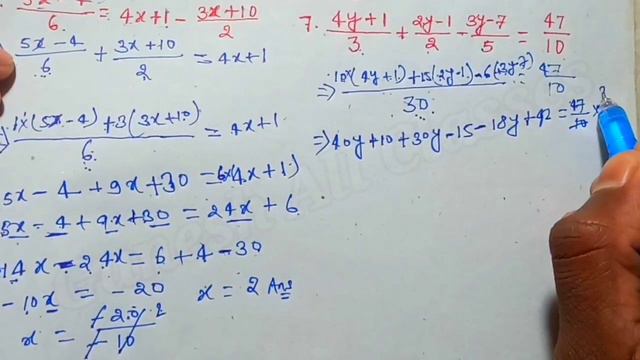 5x-4/6 = 4x+1 - 3x+10/2
5x-4/6 + 3x+10/2 = 4x+1
1x(5x-4)+3(3x+10)/6 = 4x+1
5x-4+9x+30 = 6x(4x+1)
5x-4+9x+30 = 24x+6
14x-24x = 6+4-30
-10x = -20 x = 2 Ans
x = -20/-10 2
7. 4y+1/3 + 2y-1/2 - 3y-7/5 = 47/10
⇒ 10x(4y+1)+15(2y-1)-6(3y-7)/30 = 47/10
⇒ 40y+10+30y-15-18y+42 = 47/10 x 3